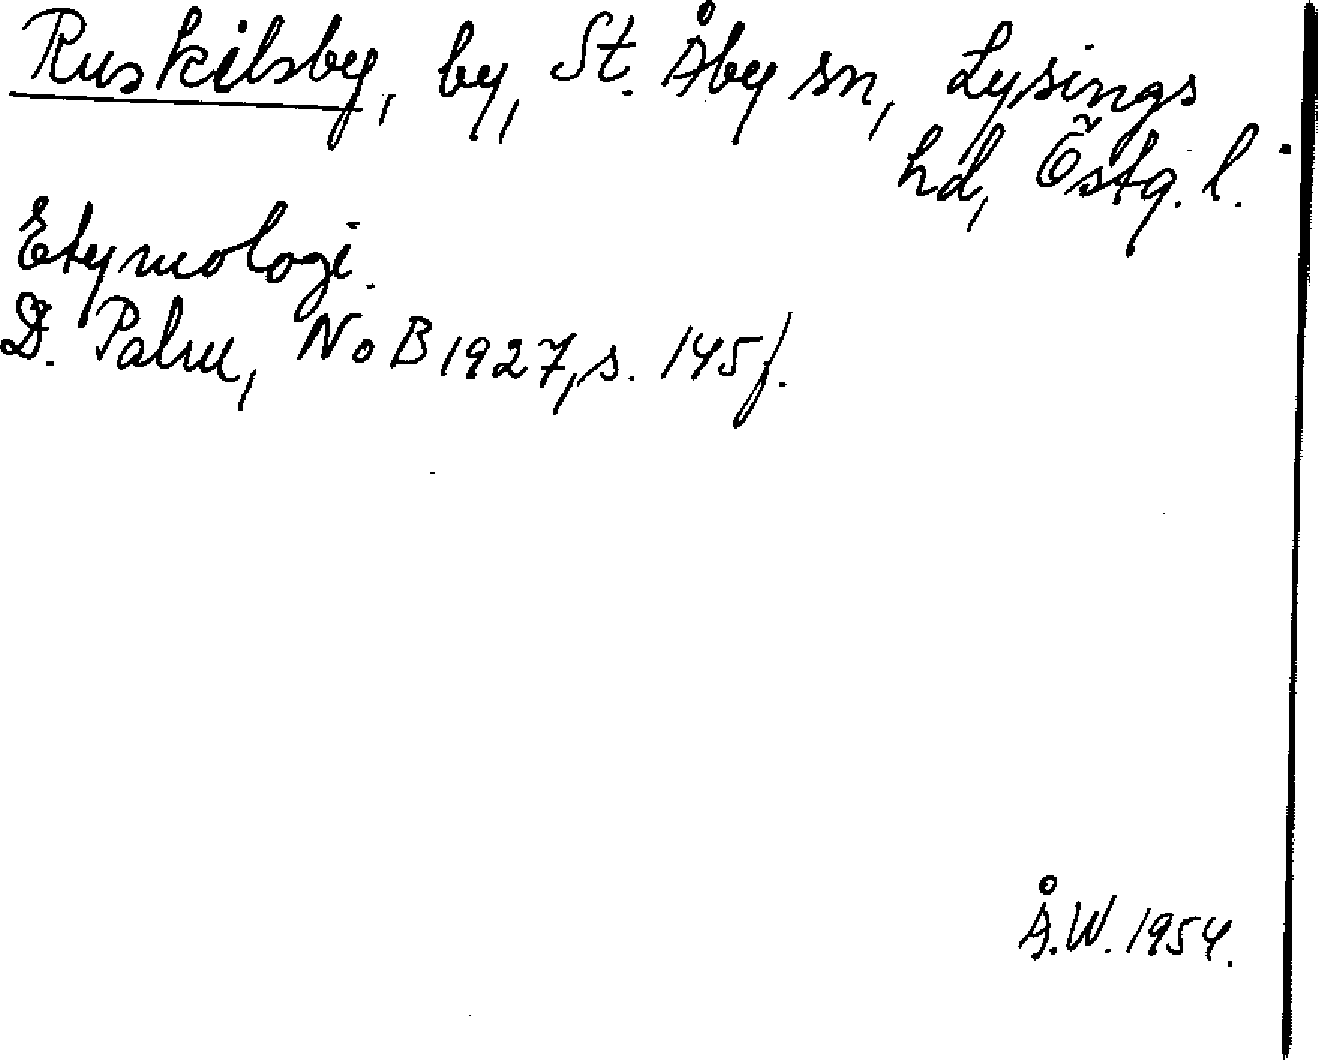 Ruskilsby, by, St. Åby sn, Lysings
hd, Östg. l.
Etymologi.
D. Palm, NoB 1927, s. 145 f.
Å.W. 1954.